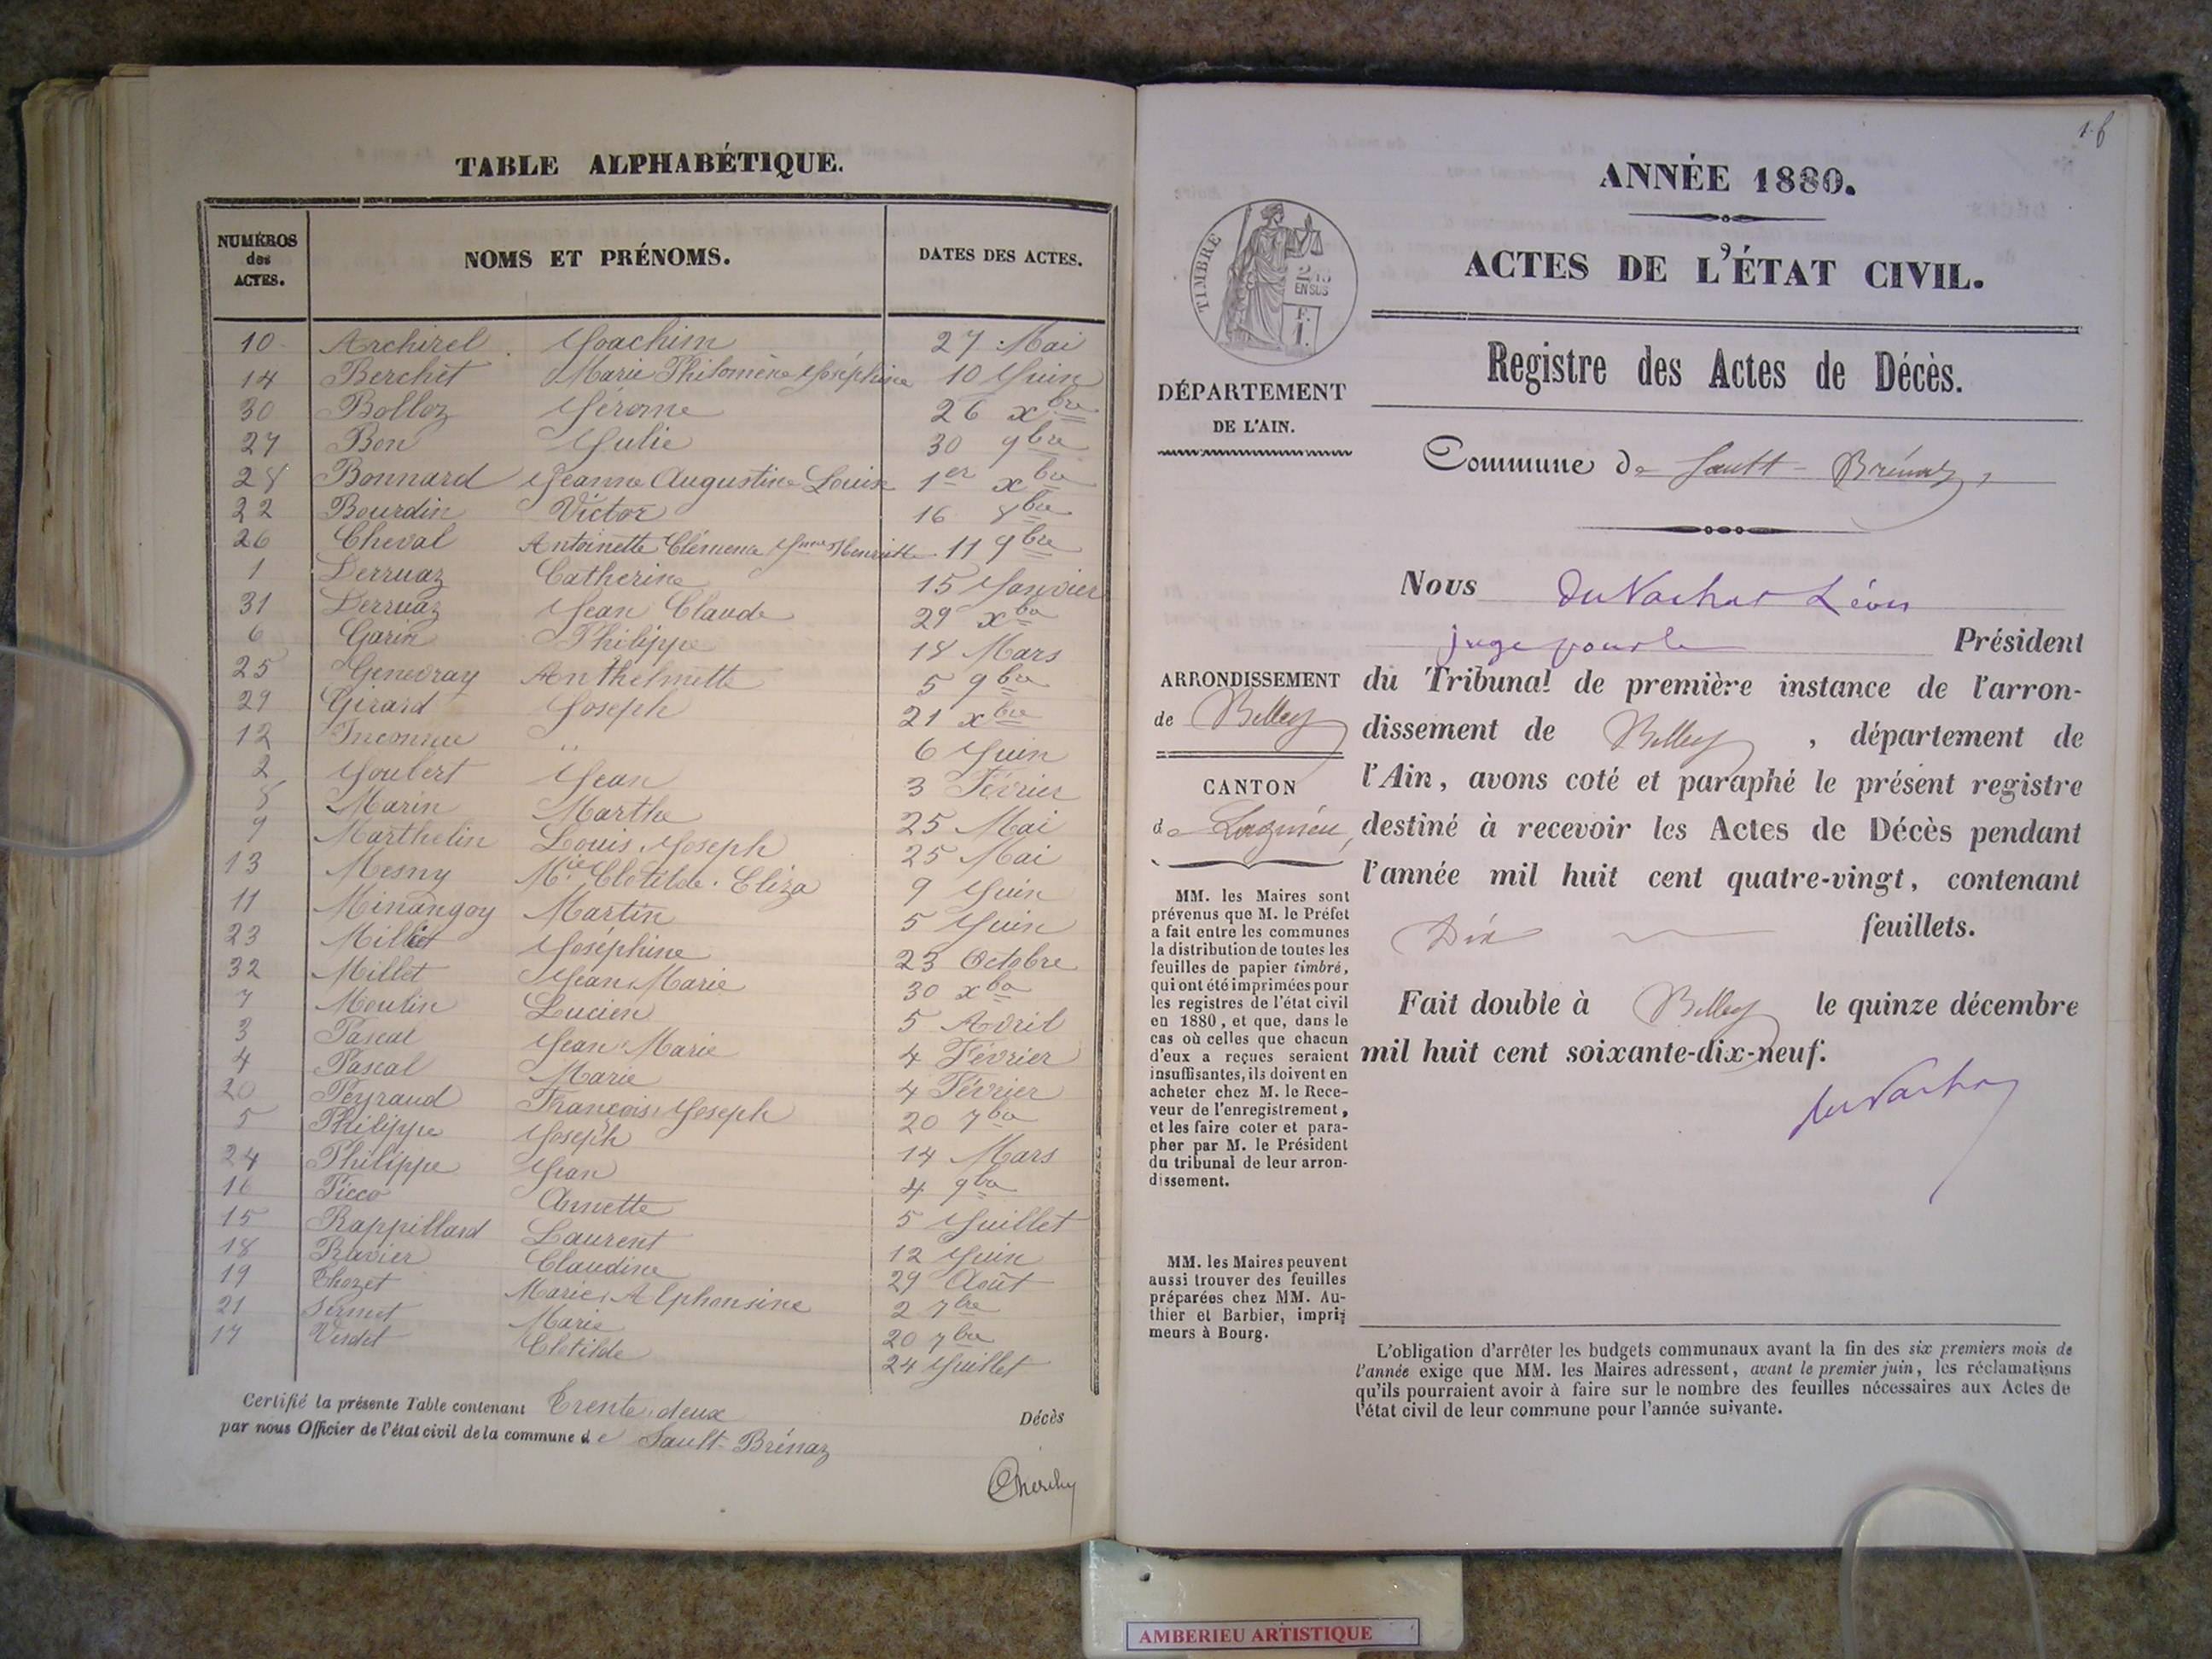 TABLE ALPHABÉTIQUE.
NUMÉROS des ACTES. NOMS ET PRÉNOMS. DATES DES ACTES.
10 Archirel Joachim 27 Mai
14 Berchet Marie Philomène Joséphine 10 Juin
30 Bolloz Jérome 26 xbre
27 Bon Julie 30 9bre
28 Bonnard Jeanne Augustine Louise 1er xbre
22 Bourdin Victor 16 8bre
26 Cheval Antoinette Clémence Henriette 11 9bre
1 Derruaz Catherine 15 Janvier
31 Derruaz Jean Claude 29 xbre
6 Garin Philippe 18 Mars
25 Genevray Anthelmette 5 9bre
29 Girard Joseph 21 xbre
12 Inconnu " 6 Juin
2 Joubert Jean 3 Février
8 Marin Marthe 25 Mai
9 Marthelin Louis Joseph 25 Mai
13 Mesny Mie Clotilde Eliza 9 Juin
11 Minangoy Martin 5 Juin
23 Millet Joséphine 23 Octobre
32 Millet Jean Marie 30 xbre
7 Moulin Lucien 5 Avril
3 Pascal Jean Marie 4 Février
4 Pascal Marie 4 Février
20 Peyraud François Joseph 20 7bre
5 Philippe Joseph 14 Mars
24 Philippe Jean 4 9bre
16 Picco Annette 5 Juillet
15 Rappillard Laurent 12 Juin
18 Ravier Claudine 29 Août
19 Thozet Marie Alphonsine 2 7bre
21 Sermet Marie 20 7bre
17 Verdet Clotilde 24 Juillet
Certifié la présente Table contenant Trente deux Décès
par nous Officier de l'état civil de la commune de Sault-Brénaz
16
ANNÉE 1880.
ACTES DE L'ÉTAT CIVIL.
Registre des Actes de Décès.
TIMBRE
EN SUS
DÉPARTEMENT
DE L'AIN.
Commune de Sault-Brénaz,
Nous du Vachat Léon
juge pour le Président
du Tribunal de première instance de l'arron-
dissement de Belley, département de
l'Ain, avons coté et paraphé le présent registre
destiné à recevoir les Actes de Décès pendant
l'année mil huit cent quatre-vingt, contenant
Dix feuillets.
Fait double à Belley le quinze décembre
mil huit cent soixante-dix-neuf.
du Vachat
ARRONDISSEMENT
de Belley
CANTON
de Lagnieu,
MM. les Maires sont
prévenus que M. le Préfet
a fait entre les communes
la distribution de toutes les
feuilles de papier timbré,
qui ont été imprimées pour
les registres de l'état civil
en 1880, et que, dans le
cas où celles que chacun
d'eux a reçues seraient
insuffisantes, ils doivent en
acheter chez M. le Rece-
veur de l'enregistrement,
et les faire coter et para-
pher par M. le Président
du tribunal de leur arron-
dissement.
MM. les Maires peuvent
aussi trouver des feuilles
préparées chez MM. Au-
thier et Barbier, impri-
meurs à Bourg.
L'obligation d'arrêter les budgets communaux avant la fin des six premiers mois de
l'année exige que MM. les Maires adressent, avant le premier juin, les réclamations
qu'ils pourraient avoir à faire sur le nombre des feuilles nécessaires aux Actes de
l'état civil de leur commune pour l'année suivante.
AMBERIEU ARTISTIQUE